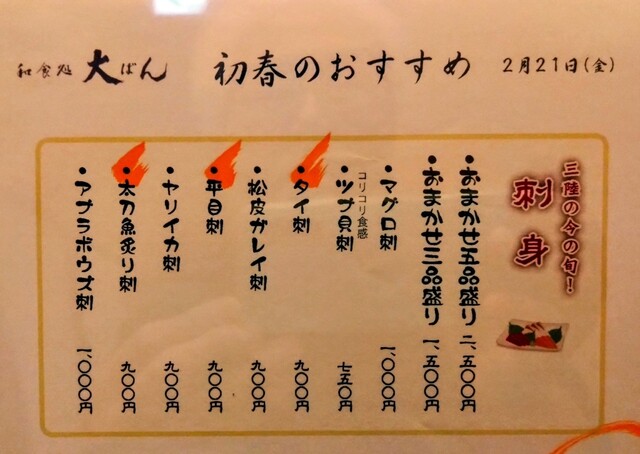 和食処 大ばん 初春のおすすめ 2月21日(金)
三陸の今の旬!
刺身
・おまかせ五品盛り 二、五〇〇円
・おまかせ三品盛り 一、五〇〇円
・マグロ刺 一、〇〇〇円
コリコリ食感
・ツブ貝刺 七五〇円
・タイ刺 九〇〇円
・松皮ガレイ刺 九〇〇円
・平目刺 九〇〇円
・ヤリイカ刺 九〇〇円
・太刀魚炙り刺 九〇〇円
・アブラボウズ刺 一、〇〇〇円